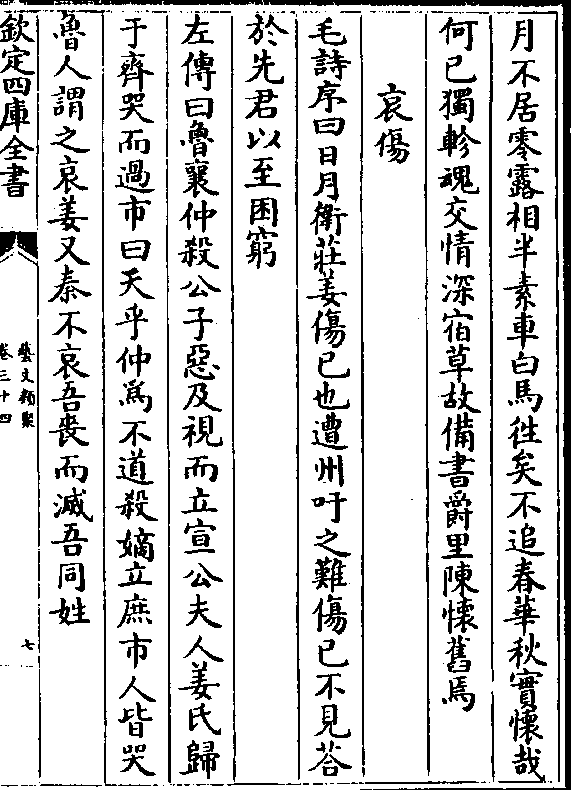 月不居零露相半素車白馬徃矣不追春華秋實懷哉
何已獨軫魂交情深宿草故備書爵里陳懷舊焉
哀傷
毛詩序曰日月衛莊姜傷已也遭州吁之難傷已不見荅
於先君以至困窮
左傳曰魯襄仲殺公子惡及視而立宣公夫人姜氏歸
于齊哭而過市曰天乎仲為不道殺嫡立庶市人皆哭
魯人謂之哀姜又秦不哀吾喪而滅吾同姓
欽定四庫全書
藝文類聚
卷三十四
七